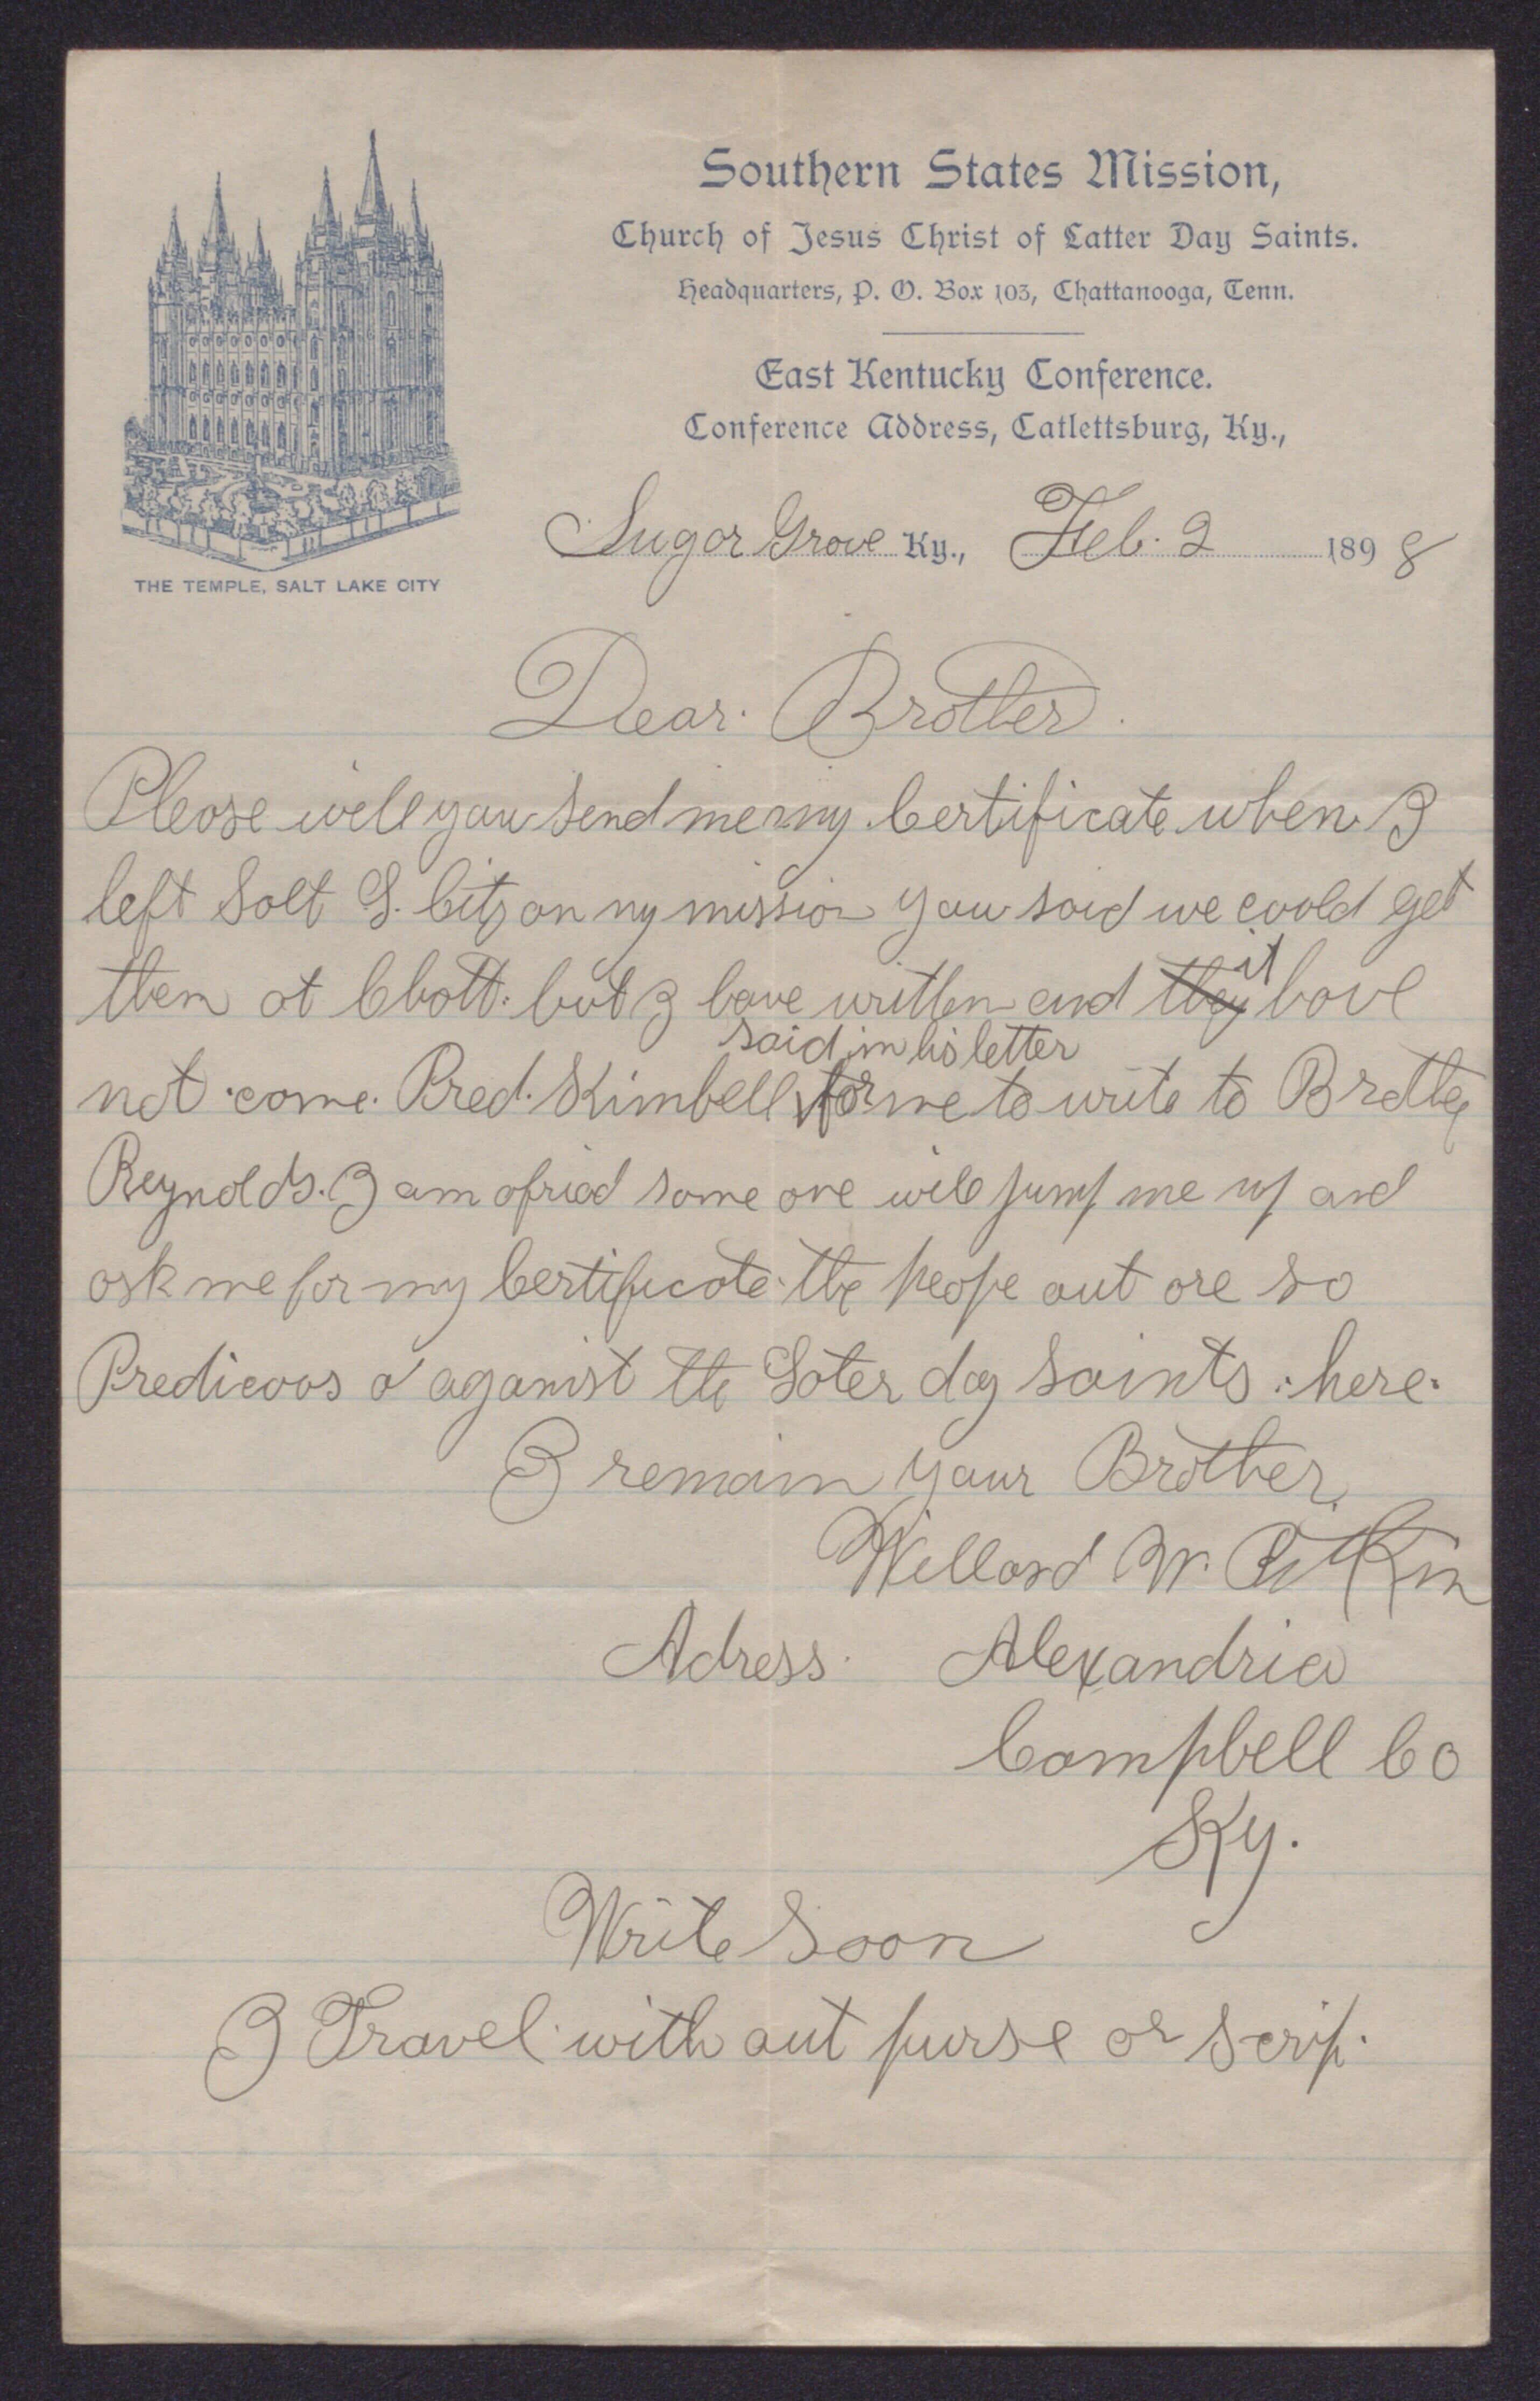 Southern States Mission,
Church of Jesus Christ of Latter Day Saints.
Headquarters, P. O. Box 103, Chattanooga, Tenn.
East Kentucky Conference.
Conference Address, Catlettsburg, Ky.,
Sugar Grove Ky., Feb. 2 1898
THE TEMPLE, SALT LAKE CITY
Dear. Brother.
Please will you send me my Certificate when I
left Salt L. City on my mission you said we coold get
them at Chatt. but I have written and they it have
not come. Pred. Kimbell said in his letter for me to write to Brother
Reynolds. I am afriad some one will jump me up and
ask me for my Certificate. the peope out are so
aganist the Later day Saints here.
I remain your Brother.
Willard W. Bitkin
Adress. Alexandria
Campbell Co
Ky.
Write Soon
I Travel with out purse or scrip.